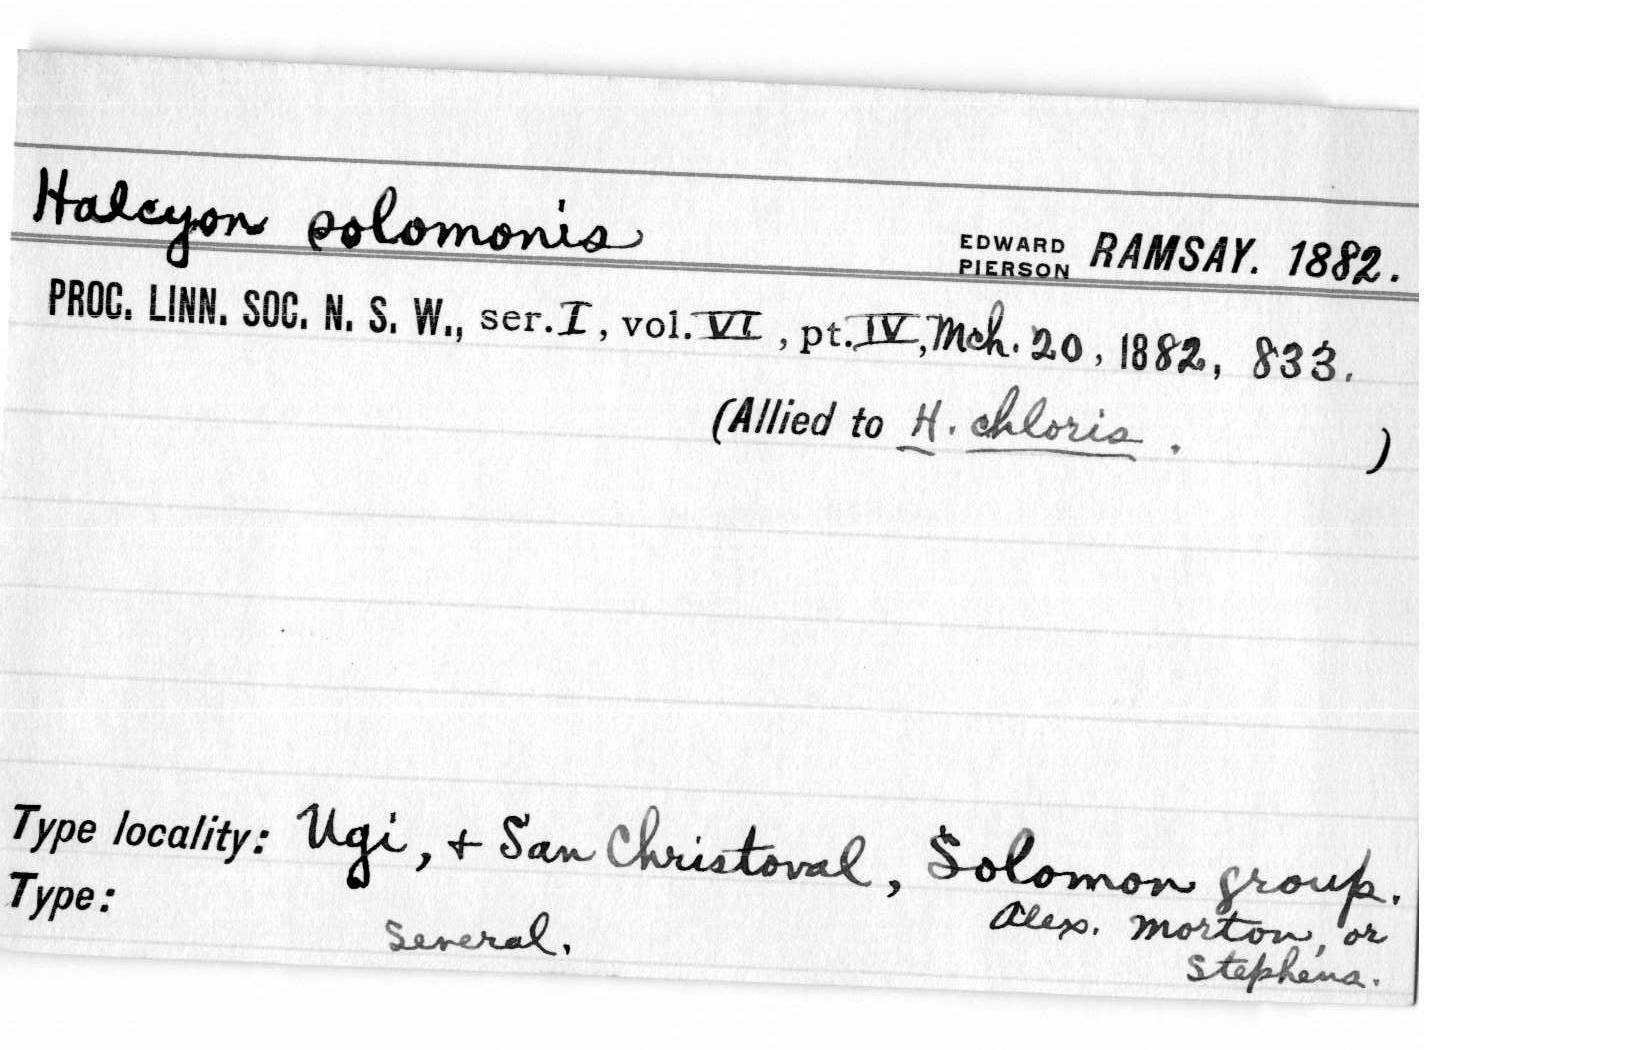 Halcyon solomonis EDWARD PIERSON RAMSAY. 1882.
PROC. LINN. SOC. N. S. W., ser. I, vol. VI, pt. IV, Mch. 20, 1882, 833.
(Allied to H. chloris. )
Type locality: Ugi, + San Christoval, Solomon group.
Type: several. Alex. Morton, or
Stephens.